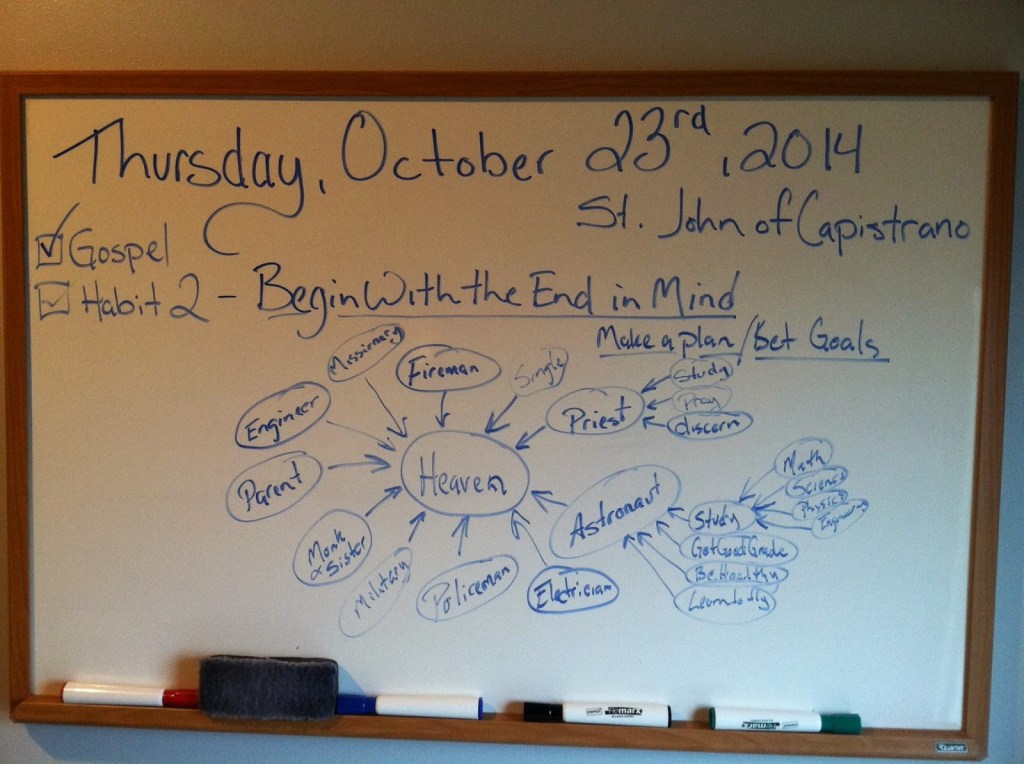 Thursday, October 23rd, 2014
St. John of Capistrano
Gospel
Habit 2 - Begin With the End in Mind
Make a plan / Set Goals
Missionary
Fireman
Single
Priest
Study
Pray
discern
Engineer
Parent
Heaven
Astronaut
Study
Math
Science
Physics
Engineering
Get Good Grade
Be Healthy
Learn to fly
Monk
& Sister
Military
Policeman
Electrician
Quartet